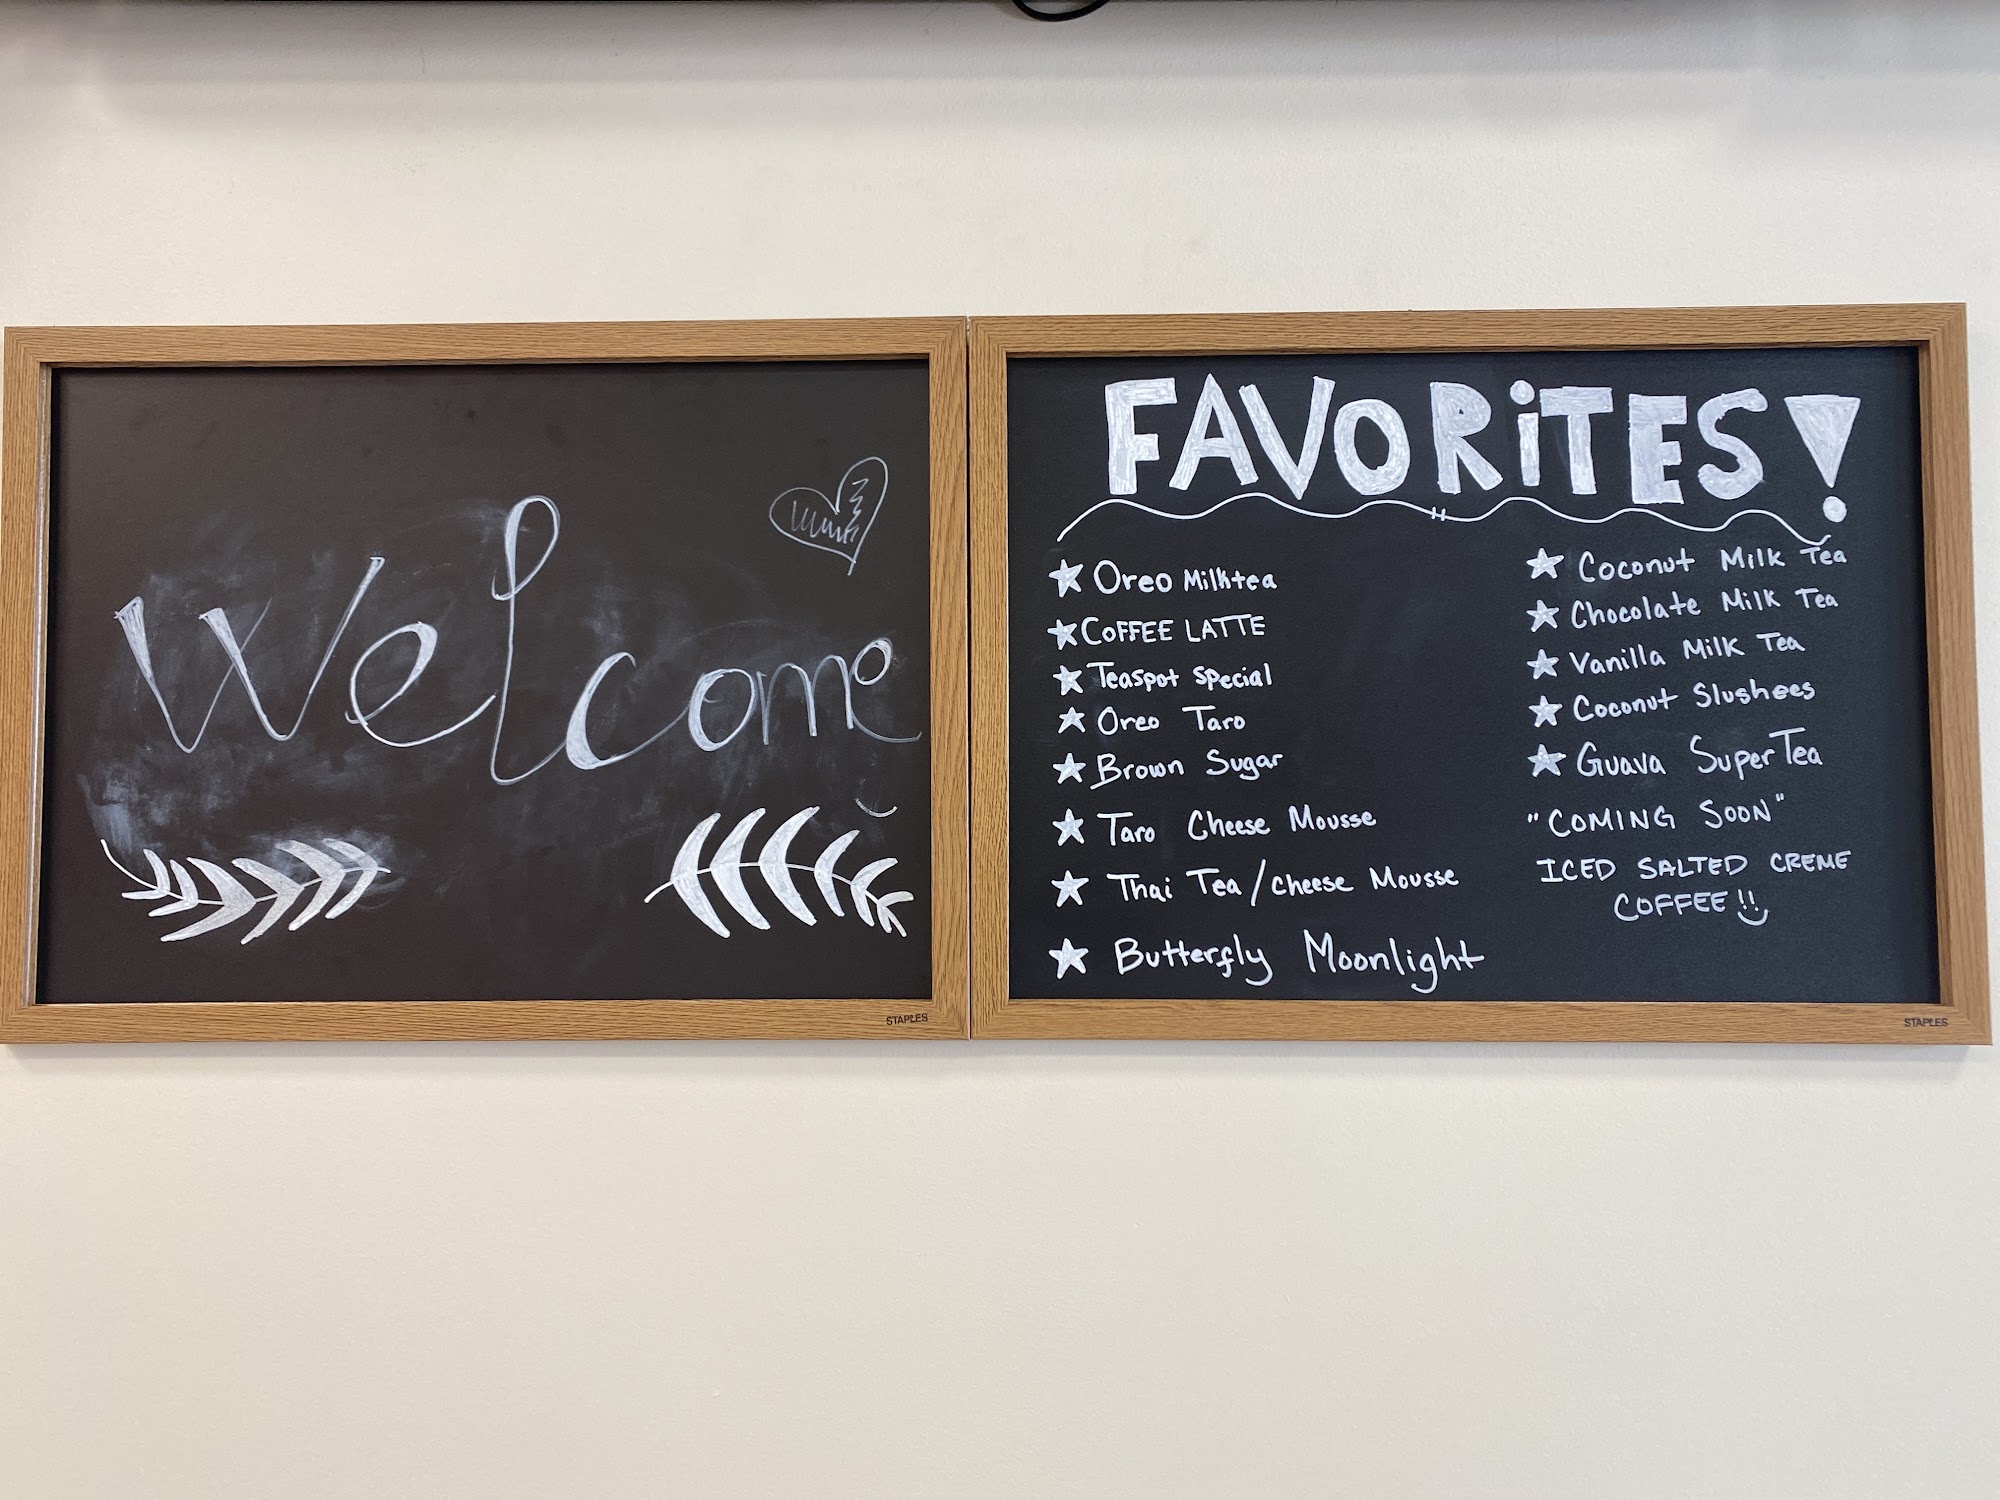 Welcome
STAPLES
FAVORiTES!
Oreo Milktea
COFFEE LATTE
Teaspot Special
Oreo Taro
Brown Sugar
Taro Cheese Mousse
Thai Tea/Cheese Mousse
Butterfly Moonlight
Coconut Milk Tea
Chocolate Milk Tea
Vanilla Milk Tea
Coconut Slushees
Guava SuperTea
"COMING SOON"
ICED SALTED CREME
COFFEE!!
STAPLES